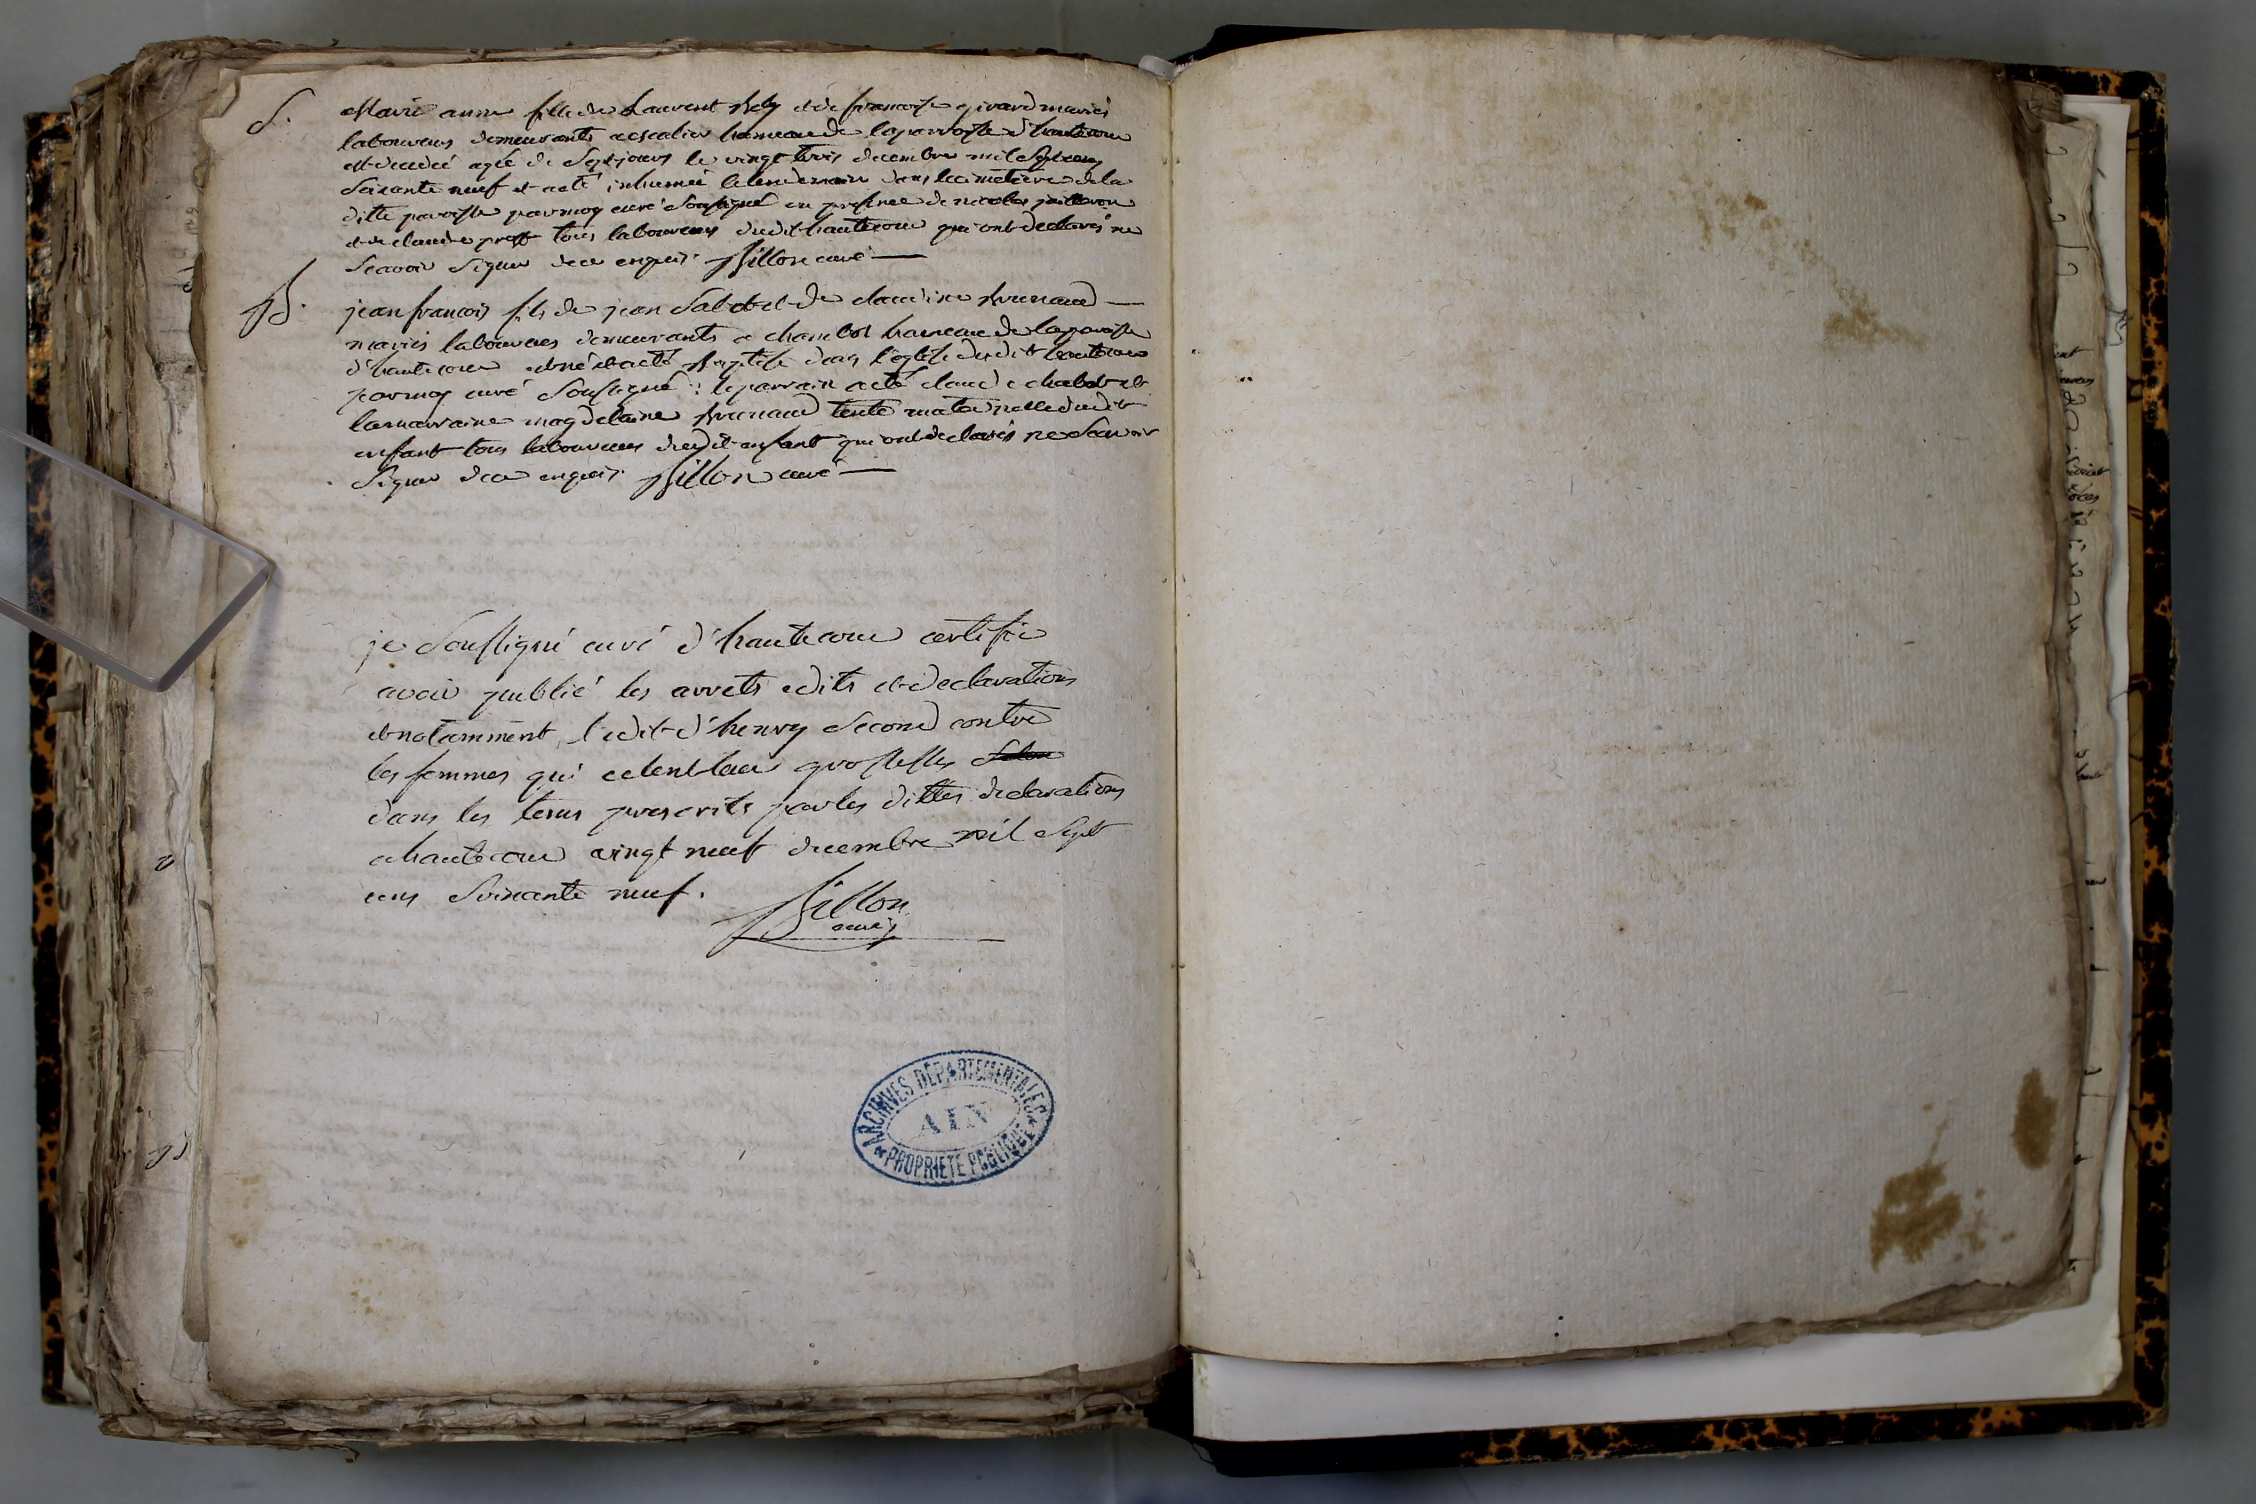 S.
Marie anne fille de Laurent Rely et de francoise girard mariés
laboureurs demeurants a escalier hameau de la parroisse d'hautecour
est decedé agée de Sept jours le vingt trois decembre mil Sept cens
Soixante neuf et a eté inhumée le lendemain dans le cimetiere de la
ditte paroisse par moy curé Soussigné en presence de nicolas
et de claude prost tous laboureurs dudit hautecour qui ont declarés ne
Scavoir Signer de ce enquis. Billon curé
B.
jean francois fils de jean et de claudine brunaud
mariés laboureurs demeurants a chambos hameau de la paroisse
d'hautecour est né et a eté baptisé dans l'eglise dudit hautecour
par moy curé Soussigné : le parrain a eté claude et
la marraine magdelaine brunaud tente maternelle dudit
enfant tous laboureurs dudit enfant qui ont declarés ne Scavoir
Signer de ce enquis. Billon curé
je Soussigné curé d'hautecour certifie
avoir publié les arrets edits et declarations
et notamment l'edit d'henry Second contre
les femmes qui celent leur grossesses
dans les tems prescrits par les dittes declarations
a hautecour vingt neuf decembre mil Sept
cens Soixante neuf.
Billon
curé
ARCHIVES DEPARTEMENTALES
AIN
PROPRIETE PUBLIQUE